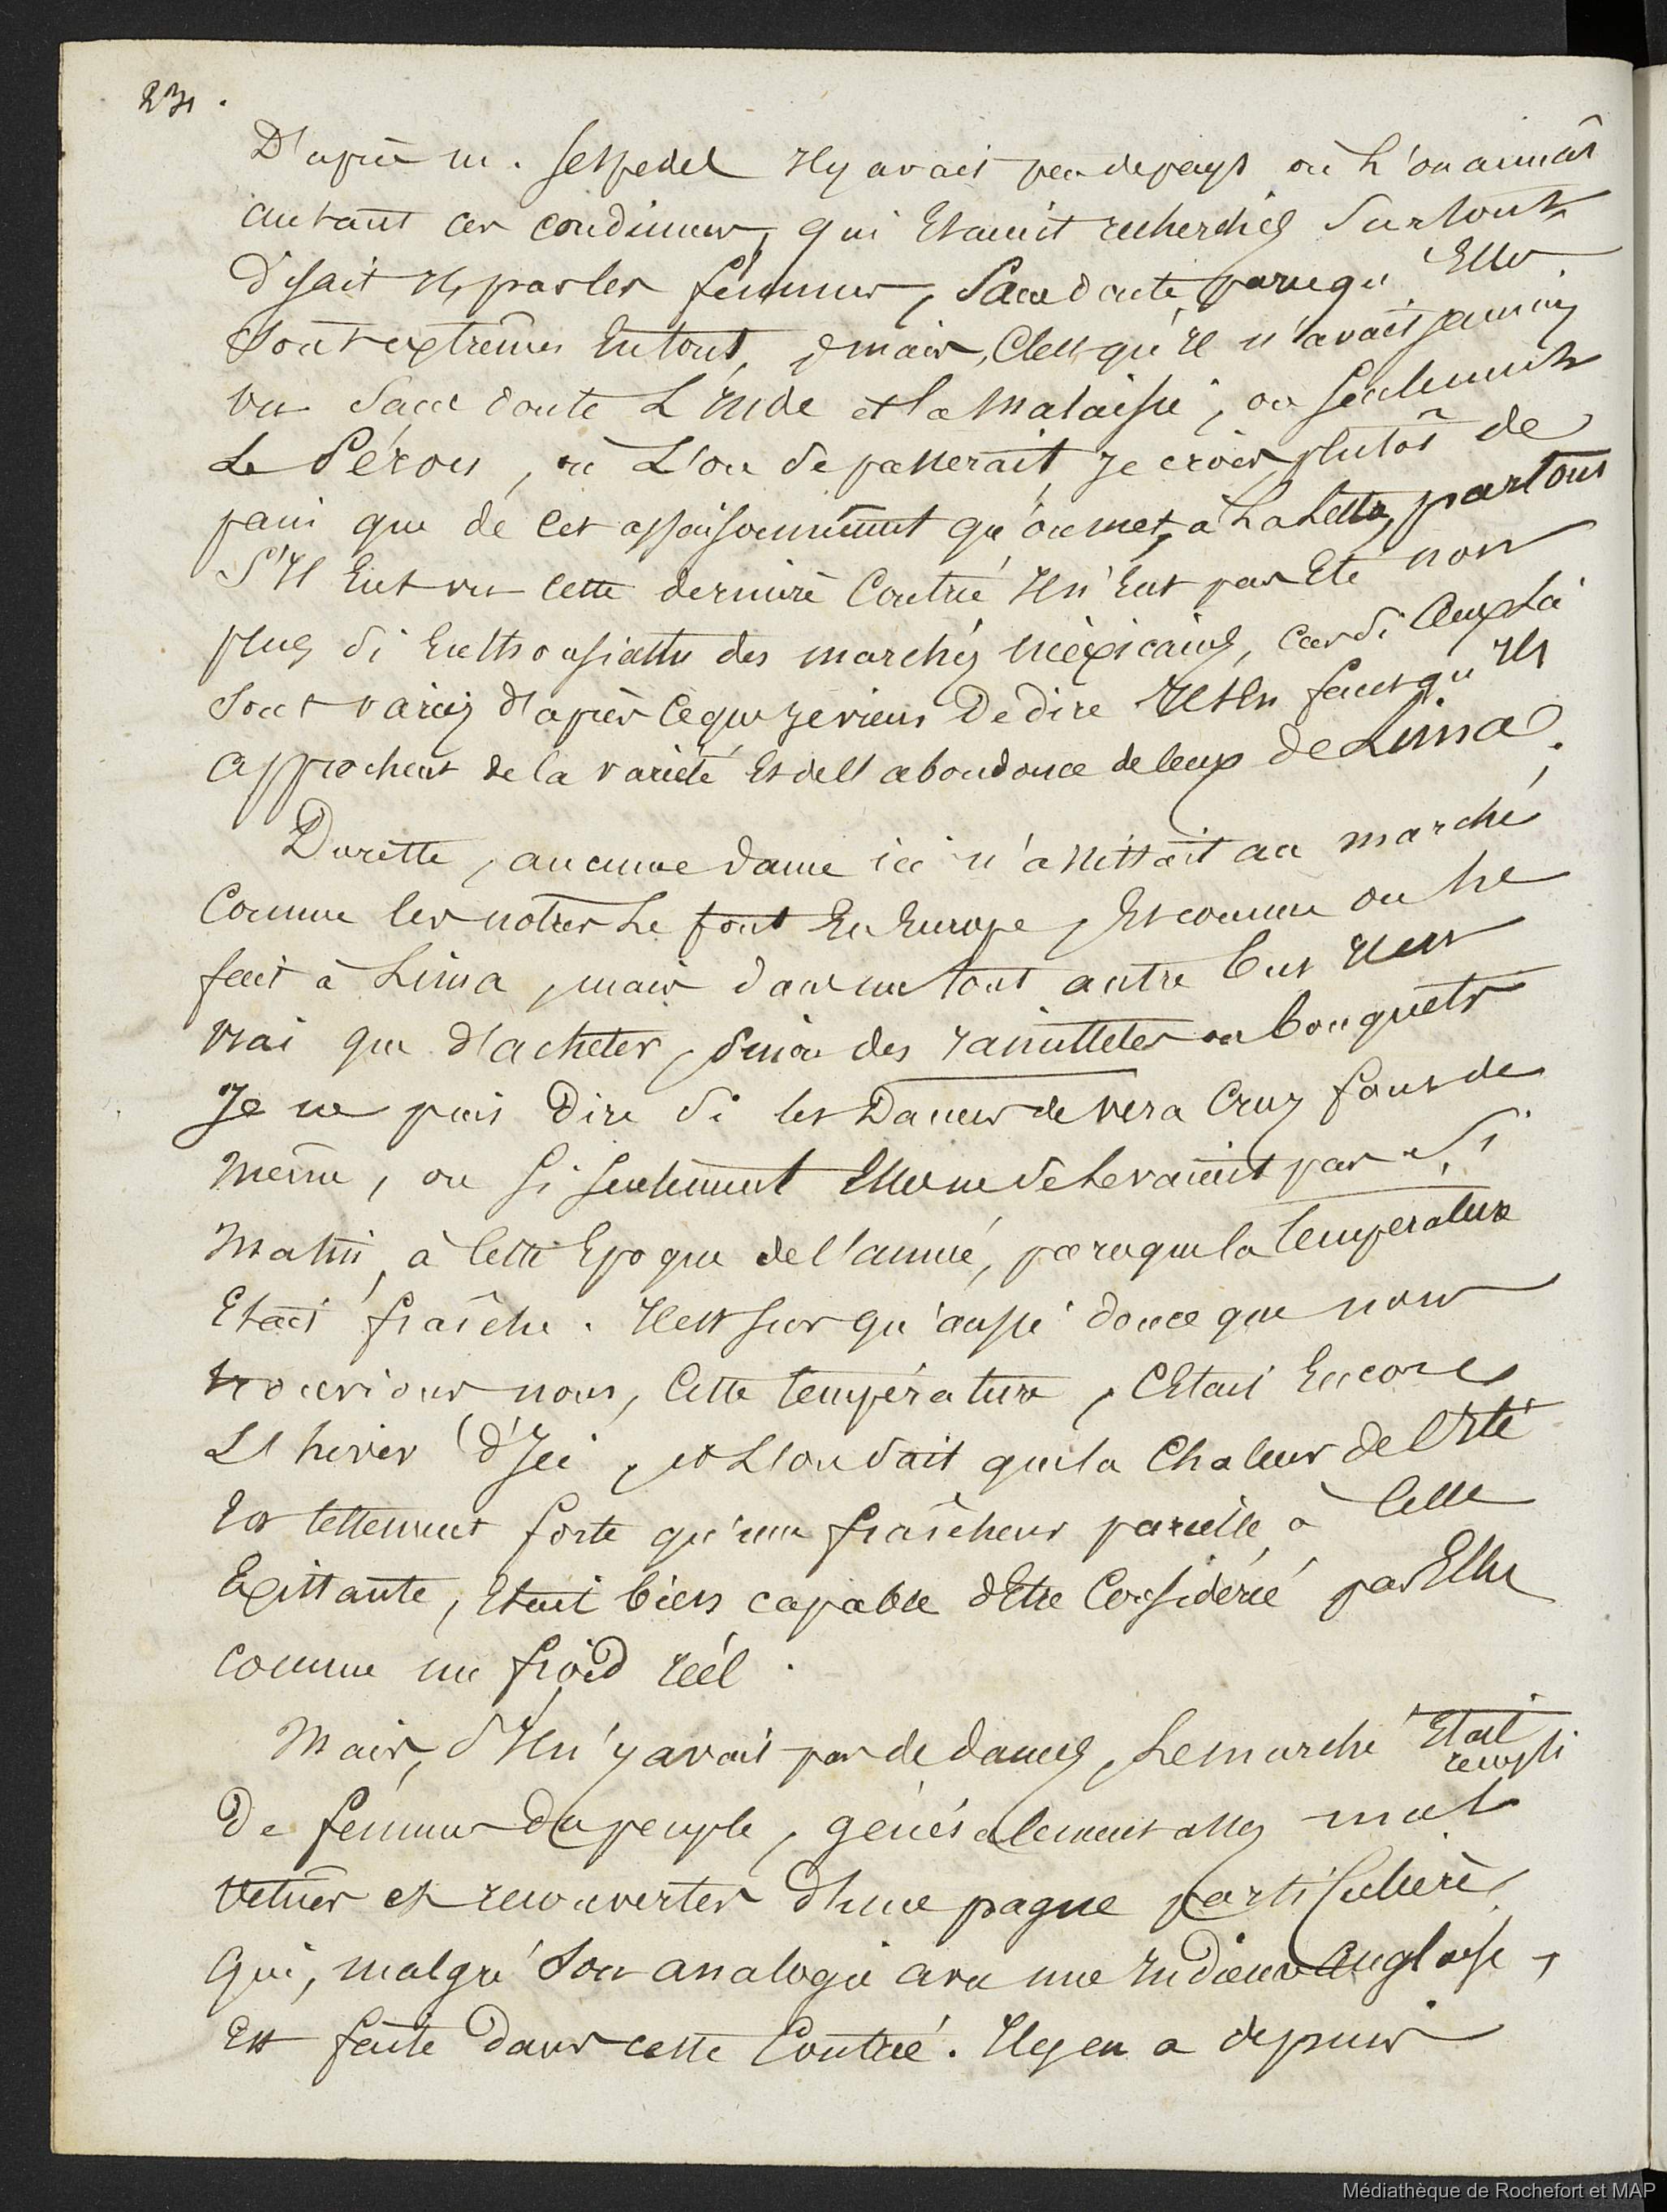 D'après m. Sespedel Il y avait peu de pays où L'on aimât
autant ces condimens, qui Etaient recherchés Surtout
disait Il, par les femmes, Sans doute parcequ'Elles
Sont extrêmes En tout, mais, C'est qu'Il n'avait jamais
vu Sans doute L'Inde et la Malaisie, ou seulement
Le Pérou, où L'on Se passerait, Je crois, plutôt de
pain que de cet assaisonnement qu'on met, à La Lettre, partout
S'Il Eut vu cette dernière Contrée Il n'Eut pas Eté non
plus Si Enthousiaste des marchés mèxicains, car Si Ceux là
Sont variés d'après Ce que Je viens De dire Il S'En faut qu'Ils
approchent de la variété Et de l'abondance de Ceux de Lima.
Du reste, aucune dame ici n'assistait au marché
Comme les notres Le font En Europe, Et comme on Le
fait à Lima, mais dans un tout autre but Il est
vrai que d'acheter, Sinon des ramilletes ou bouquets
Je ne puis Dire Si les Dames de Vera Cruz font de
même, ou Si Seulement Elles ne Se Levaient pas Si
Matin, à Cette Epoque de l'année, parceque la Temperature
Etait fraîche. Il est sur qu'aussi douce que nous
trouvions nous, Cette température, C'Etait Encore
L'hiver d'Ici, et L'on Sait que la Chaleur de l'Eté
Est tellement forte qu'une fraîcheur pareille à Celle
Existante, Etait bien capable d'Etre Considérée par Elles
comme un froid réel.
Mais, S'Il n'y avait pas de dames, Le marché Etait
rempli
De femmes du peuple, généralement assez mal
vetues et recouvertes d'une pagne particulière
Qui, malgré Son analogie avec une Indienne Anglaise,
Est faite dans cette Contrée. Il y en a depuis
Médiathèque de Rochefort et MAP